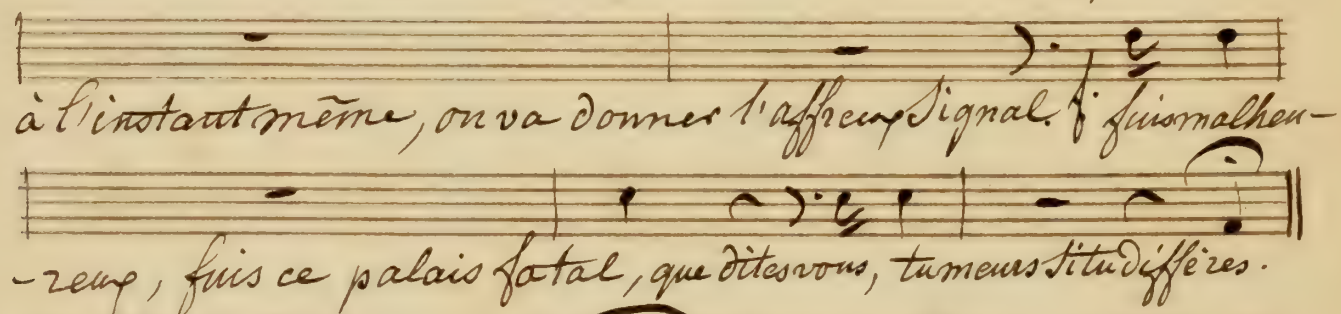 à l'instant même, on va donner l'affreux Signal. fuis malheu-
-reux, fuis ce palais fatal, que dites vous, tu meurs si tu différes.